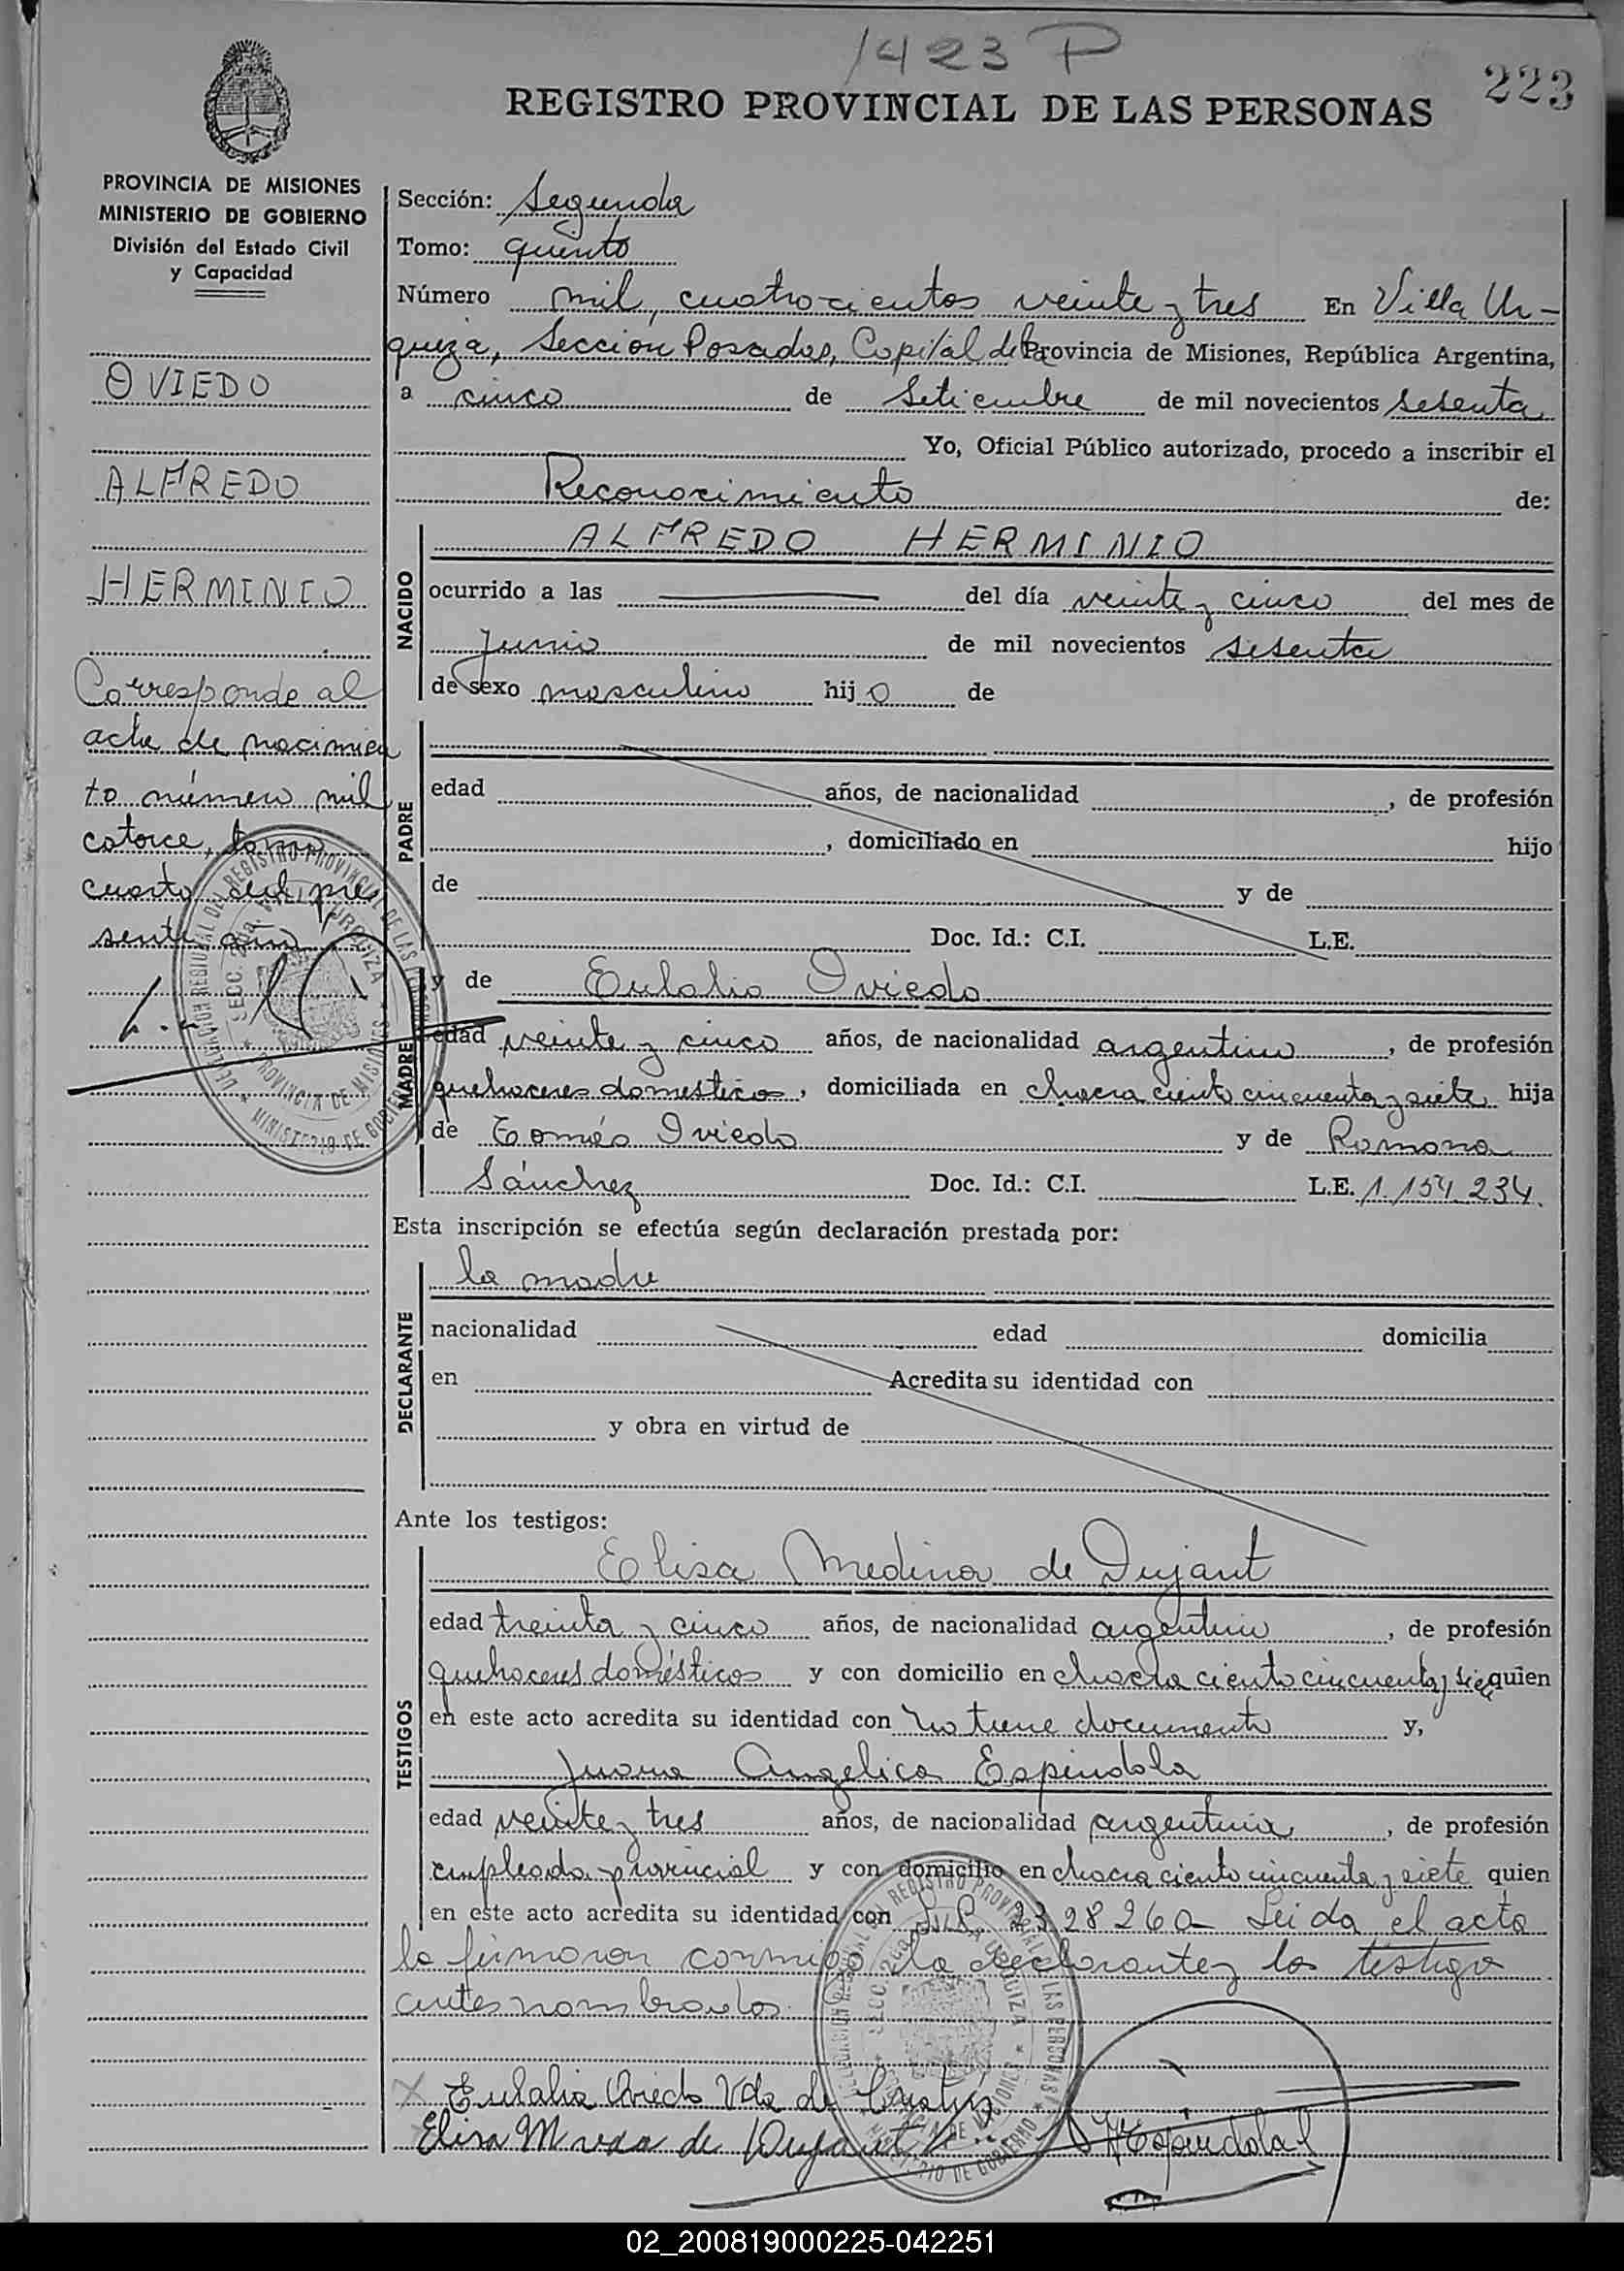 1423 P
223
REGISTRO PROVINCIAL DE LAS PERSONAS
PROVINCIA DE MISIONES
MINISTERIO DE GOBIERNO
División del Estado Civil
y Capacidad
OVIEDO
ALFREDO
HERMINIO
Corresponde al
acta de nacimien
to número mil
catorce, tomo
cuarto del pre
sente año
Sección: Segunda
Tomo: quinto
Número mil, cuatrocientos veinte y tres En Villa Ur-
quiza, Sección Posadas, Capital de la Provincia de Misiones, República Argentina,
a cinco de Setiembre de mil novecientos sesenta
Yo, Oficial Público autorizado, procedo a inscribir el
Reconocimiento de:
NACIDO
ALFREDO HERMINIO
ocurrido a las del día veinte y cinco del mes de
Junio de mil novecientos sesenta
de sexo masculino hijo de
PADRE
edad años, de nacionalidad , de profesión
, domiciliado en hijo
de y de
Doc. Id.: C.I. L.E.
MADRE
y de Eulalia Oviedo
edad veinte y cinco años, de nacionalidad argentina, de profesión
quehaceres domesticos, domiciliada en chacra ciento cincuenta y siete hija
de Tomás Oviedo y de Ramona
Sánchez Doc. Id.: C.I. L.E. 1.154.234.
Esta inscripción se efectúa según declaración prestada por:
DECLARANTE
la madre
nacionalidad edad domicilia
en Acredita su identidad con
y obra en virtud de
Ante los testigos:
TESTIGOS
Elisa Medina de Dujaut
edad treinta y cinco años, de nacionalidad argentina, de profesión
quehaceres domésticos y con domicilio en chacra ciento cincuenta y siete quien
en este acto acredita su identidad con No tiene documento y,
Juana Angelica Espindola
edad veinte y tres años, de nacionalidad argentina, de profesión
empleada provincial y con domicilio en chacra ciento cincuenta y siete quien
en este acto acredita su identidad con 2328260- Leida el acta
la firmaron conmigo la declarante y los testigos
antes nombrados.
Eulalia Oviedo Vda de
Elisa M de Dujaut
Espindola
DELEGACION REGIONAL DEL REGISTRO PROVINCIAL DE LAS PERSONAS
SECC. 2da. VILLA URQUIZA
PROVINCIA DE MISIONES
MINISTERIO DE GOBIERNO
02_200819000225-042251